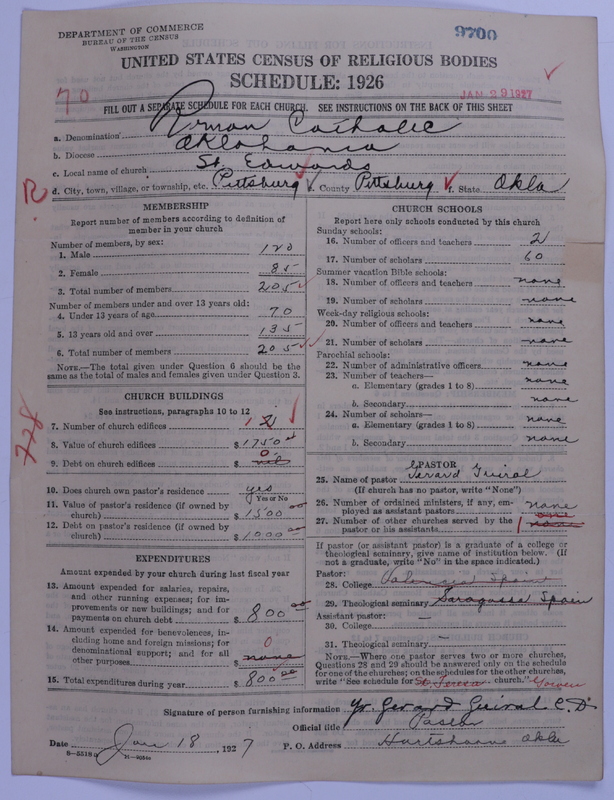 DEPARTMENT OF COMMERCE
BUREAU OF THE CENSUS
WASHINGTON
9700
UNITED STATES CENSUS OF RELIGIOUS BODIES
SCHEDULE: 1926
JAN 29 1927
70
FILL OUT A SEPARATE SCHEDULE FOR EACH CHURCH. SEE INSTRUCTIONS ON THE BACK OF THIS SHEET
a. Denomination Roman Catholic
b. Diocese Oklahoma
c. Local name of church St. Edwards
d. City, town, village, or township, etc. Pittsburg County Pittsburg f. State Okla
R
MEMBERSHIP
Report number of members according to definition of
member in your church
Number of members, by sex:
1. Male 120
2. Female 85
3. Total number of members 205
Number of members under and over 13 years old:
4. Under 13 years of age 70
5. 13 years old and over 135
6. Total number of members 205
NOTE.—The total given under Question 6 should be the
same as the total of males and females given under Question 3.
CHURCH BUILDINGS
See instructions, paragraphs 10 to 12
7. Number of church edifices 1 2
8. Value of church edifices $ 1750
9. Debt on church edifices $ 0 nil
778
10. Does church own pastor's residence yes
Yes or No
11. Value of pastor's residence (if owned by
church) $ 1500 00
12. Debt on pastor's residence (if owned by
church) $ 1000 00
EXPENDITURES
Amount expended by your church during last fiscal year
13. Amount expended for salaries, repairs,
and other running expenses; for im-
provements or new buildings; and for
payments on church debt $ 800 00
14. Amount expended for benevolences, in-
cluding home and foreign missions; for
denominational support; and for all
other purposes $ 0 none
15. Total expenditures during year $ 800 00
CHURCH SCHOOLS
Report here only schools conducted by this church
Sunday schools:
16. Number of officers and teachers 2
17. Number of scholars 60
Summer vacation Bible schools:
18. Number of officers and teachers none
19. Number of scholars none
Week-day religious schools:
20. Number of officers and teachers none
21. Number of scholars none
Parochial schools:
22. Number of administrative officers none
23. Number of teachers—
a. Elementary (grades 1 to 8) none
b. Secondary none
24. Number of scholars—
a. Elementary (grades 1 to 8) none
b. Secondary none
PASTOR
25. Name of pastor Gerard Guiral
(If church has no pastor, write "None")
26. Number of ordained ministers, if any, em-
ployed as assistant pastors none
27. Number of other churches served by the
pastor or his assistants 1 one none
If pastor (or assistant pastor) is a graduate of a college or
theological seminary, give name of institution below. (If
not a graduate, write "No" in the space indicated.)
Pastor:
28. College Spain
29. Theological seminary Saragossa Spain
Assistant pastor: —
30. College
31. Theological seminary —
NOTE.—Where one pastor serves two or more churches,
Questions 28 and 29 should be answered only on the schedule
for one of the churches; on the schedules for the other churches,
write "See schedule for St. Teresa church." Gowen
Signature of person furnishing information Fr. Gerard Guiral C.D.
Official title Pastor
Date Jan 18, 1927 P. O. Address Hartshorne Okla